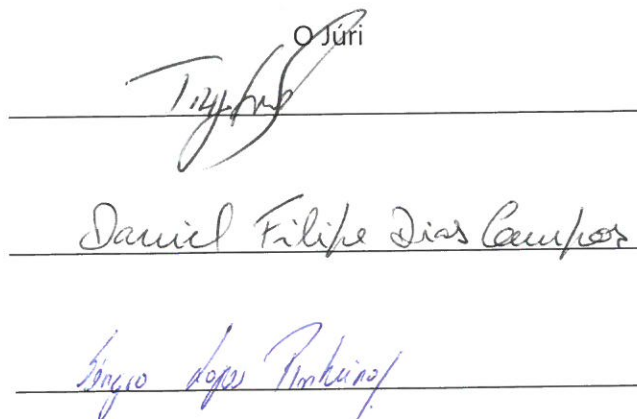 O Júri
Daniel Filipe Dias Campos
Sérgio Lopes Pinheiro